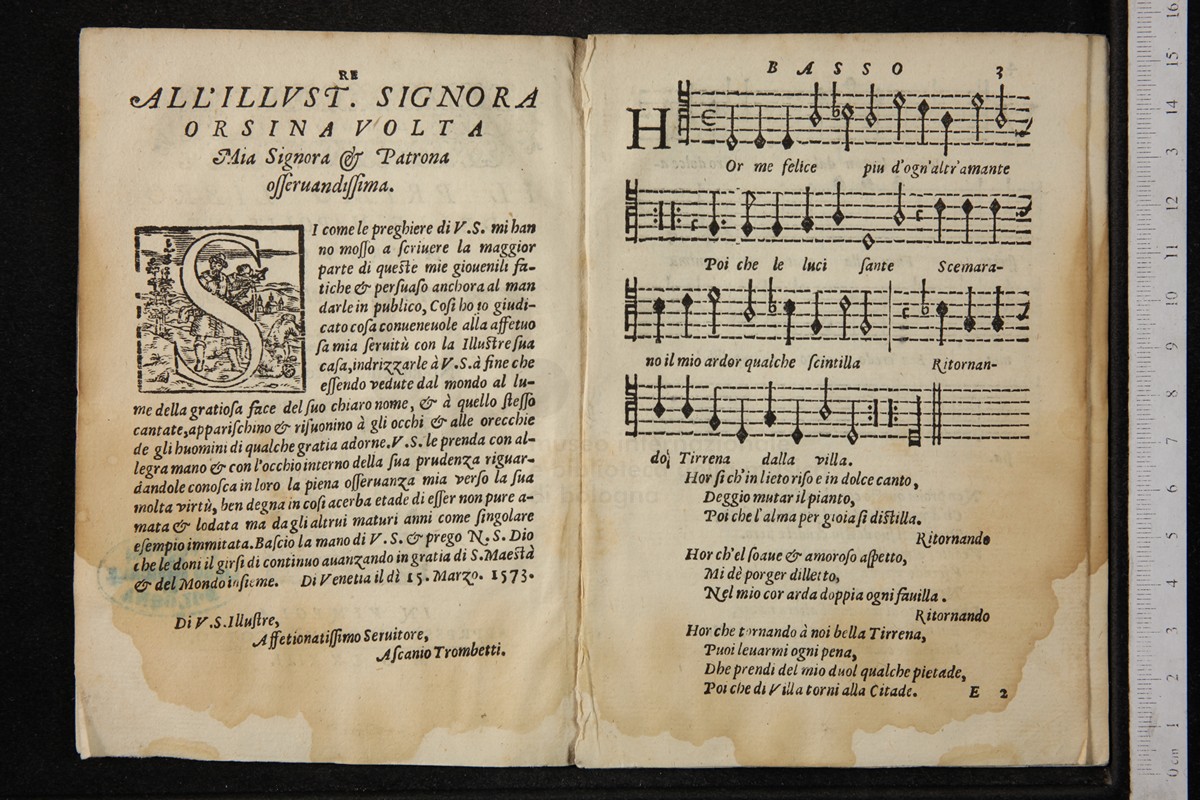 RE
ALL'ILLVST. SIGNORA
ORSINA VOLTA
Mia Signora & Patrona
osseruandissima.
SI come le preghiere di V.S. mi han
no mosso a scriuere la maggior
parte di queste mie giouenili fa-
tiche & persuaso anchora al man
darle in publico, Cosi ho io giudi-
cato cosa conueneuole alla affetuo
sa mia seruitù con la Illustre sua
casa, indrizzarle à V.S. à fine che
essendo vedute dal mondo al lu-
me della gratiosa face del suo chiaro nome, & à quello stesso
cantate, apparischino & risuonino à gli occhi & alle orecchie
de gli huomini di qualche gratia adorne. V.S. le prenda con al-
legra mano & con l'occhio interno della sua prudenza riguar-
dandole conosca in loro la piena osseruanza mia verso la sua
molta virtù, ben degna in cosi acerba etade di esser non pure a-
mata & lodata ma dagli altrui maturi anni come singolare
esempio immitata. Bascio la mano di V.S. & prego N.S. Dio
che le doni il girsi di continuo auanzando in gratia di S. Maestà
& del Mondo insieme. Di Venetia il dì 15. Marzo. 1573.
Di V.S. Illustre,
Affetionatissimo Seruitore,
Ascanio Trombetti.
BASSO 3
HOr me felice piu d'ogn'altr'amante
Poi che le luci sante Scemara-
no il mio ardor qualche scintilla Ritornan-
do Tirrena dalla villa.
Hor si ch'in lieto riso e in dolce canto,
Deggio mutar il pianto,
Poi che l'alma per gioia si distilla.
Ritornando
Hor ch'el soaue & amoroso aspetto,
Mi dè porger dilletto,
Nel mio cor arda doppia ogni fauilla.
Ritornando
Hor che tornando à noi bella Tirrena,
Puoi leuarmi ogni pena,
Dhe prendi del mio duol qualche pietade,
Poi che di Villa torni alla Citade.
E 2
0 cm 1 2 3 4 5 6 7 8 9 10 11 12 13 14 15 16